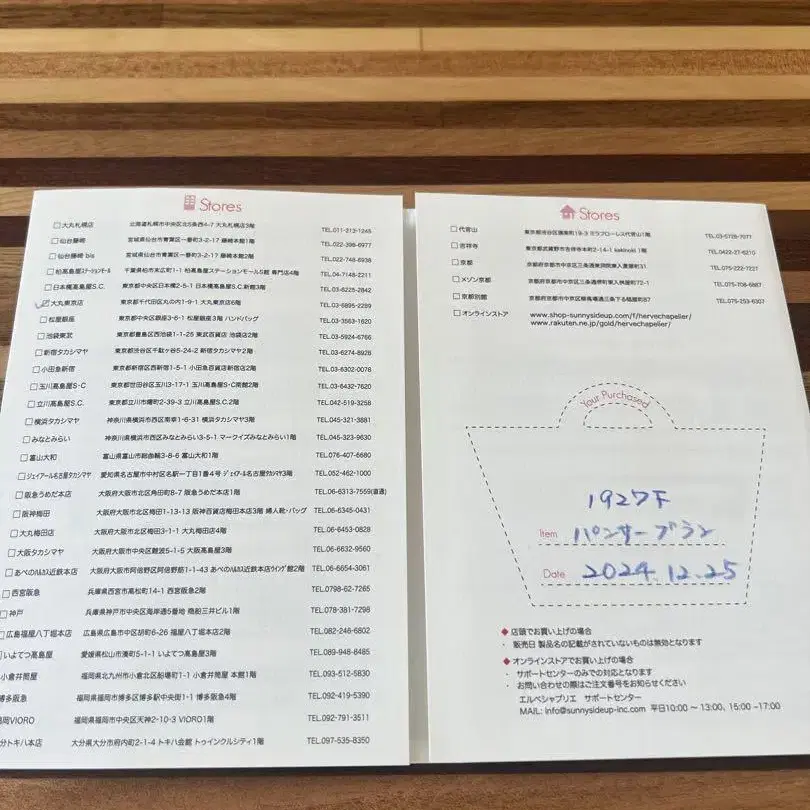 Stores
大丸札幌店 北海道札幌市中央区北5条西4-7 大丸札幌店3階 TEL.011-213-1245
仙台藤崎 宮城県仙台市青葉区一番町3-2-17 藤崎本館1階 TEL.022-398-6977
仙台藤崎 bis 宮城県仙台市青葉区一番町3-2-17 藤崎本館2階 TEL.022-748-6938
柏高島屋ステーションモール 千葉県柏市末広町1-1 柏高島屋ステーションモールS館 専門店4階 TEL.04-7148-2211
日本橋高島屋S.C. 東京都中央区日本橋2-5-1 日本橋高島屋S.C.新館3階 TEL.03-6225-2842
大丸東京店 東京都千代田区丸の内1-9-1 大丸東京店6階 TEL.03-6895-2289
松屋銀座 東京都中央区銀座3-6-1 松屋銀座3階 ハンドバッグ TEL.03-3563-1620
池袋東武 東京都豊島区西池袋1-1-25 東武百貨店 池袋店2階 TEL.03-5924-6766
新宿タカシマヤ 東京都渋谷区千駄ヶ谷5-24-2 新宿タカシマヤ2階 TEL.03-6274-8928
小田急新宿 東京都新宿区西新宿1-5-1 小田急百貨店新宿店2階 TEL.03-6302-0078
玉川髙島屋S・C 東京都世田谷区玉川3-17-1 玉川髙島屋S・C南館2階 TEL.03-6432-7620
立川髙島屋S.C. 東京都立川市曙町2-39-3 立川髙島屋S.C.2階 TEL.042-519-3258
横浜タカシマヤ 神奈川県横浜市西区南幸1-6-31 横浜タカシマヤ3階 TEL.045-321-3881
みなとみらい 神奈川県横浜市西区みなとみらい3-5-1 マークイズみなとみらい1階 TEL.045-323-9630
富山大和 富山県富山市総曲輪3-8-6 富山大和1階 TEL.076-407-6680
ジェイアール名古屋タカシマヤ 愛知県名古屋市中村区名駅一丁目1番4号 ジェイアール名古屋タカシマヤ3階 TEL.052-462-1000
阪急うめだ本店 大阪府大阪市北区角田町8-7 阪急うめだ本店1階 TEL.06-6313-7559(直通)
阪神梅田 大阪府大阪市北区梅田1-13-13 阪神百貨店梅田本店3階 婦人靴・バッグ TEL.06-6345-0431
大丸梅田店 大阪府大阪市北区梅田3-1-1 大丸梅田店4階 TEL.06-6453-0828
大阪タカシマヤ 大阪府大阪市中央区難波5-1-5 大阪高島屋3階 TEL.06-6632-9560
あべのハルカス近鉄本店 大阪府大阪市阿倍野区阿倍野筋1-1-43 あべのハルカス近鉄本店ウイング館2階 TEL.06-6654-3061
西宮阪急 兵庫県西宮市高松町14-1 西宮阪急2階 TEL.0798-62-7265
神戸 兵庫県神戸市中央区海岸通5番地 商船三井ビル1階 TEL.078-381-7298
広島福屋八丁堀本店 広島県広島市中区胡町6-26 福屋八丁堀本店2階 TEL.082-246-6802
いよてつ髙島屋 愛媛県松山市湊町5-1-1 いよてつ髙島屋3階 TEL.089-948-8485
小倉井筒屋 福岡県北九州市小倉北区船場町1-1 小倉井筒屋 本館1階 TEL.093-512-5830
博多阪急 福岡県福岡市博多区博多駅中央街1-1 博多阪急4階 TEL.092-419-5390
岡VIORO 福岡県福岡市中央区天神2-10-3 VIORO1階 TEL.092-791-3511
分トキハ本店 大分県大分市府内町2-1-4 トキハ会館 トゥインクルシティ1階 TEL.097-535-8350
Stores
代官山 東京都渋谷区猿楽町19-3 ミラプローレス代官山1階 TEL.03-5728-7077
吉祥寺 東京都武蔵野市吉祥寺本町2-14-1 sakinoki 1階 TEL.0422-27-6210
京都 京都府京都市中京区三条通東洞院東入菱屋町31 TEL.075-222-7227
メゾン京都 京都府京都市中京区三条通堺町東入桝屋町72-1 TEL.075-708-6887
京都別館 京都府京都市中京区柳馬場通三条下る槌屋町87 TEL.075-253-6307
オンラインストア www.shop-sunnysideup.com/f/hervechapelier/
www.rakuten.ne.jp/gold/hervechapelier/
Your Purchased
1927F
Item パンサーブラン
Date 2024.12.25
◆ 店頭でお買い上げの場合
・ 販売日 製品名の記載がされていないものは無効となります
◆ オンラインストアでお買い上げの場合
・ サポートセンターのみでの対応となります
・ お問い合わせの際はご注文番号をお知らせください
エルベシャプリエ サポートセンター
MAIL: info@sunnysideup-inc.com 平日10:00 ~ 13:00, 15:00 ~17:00